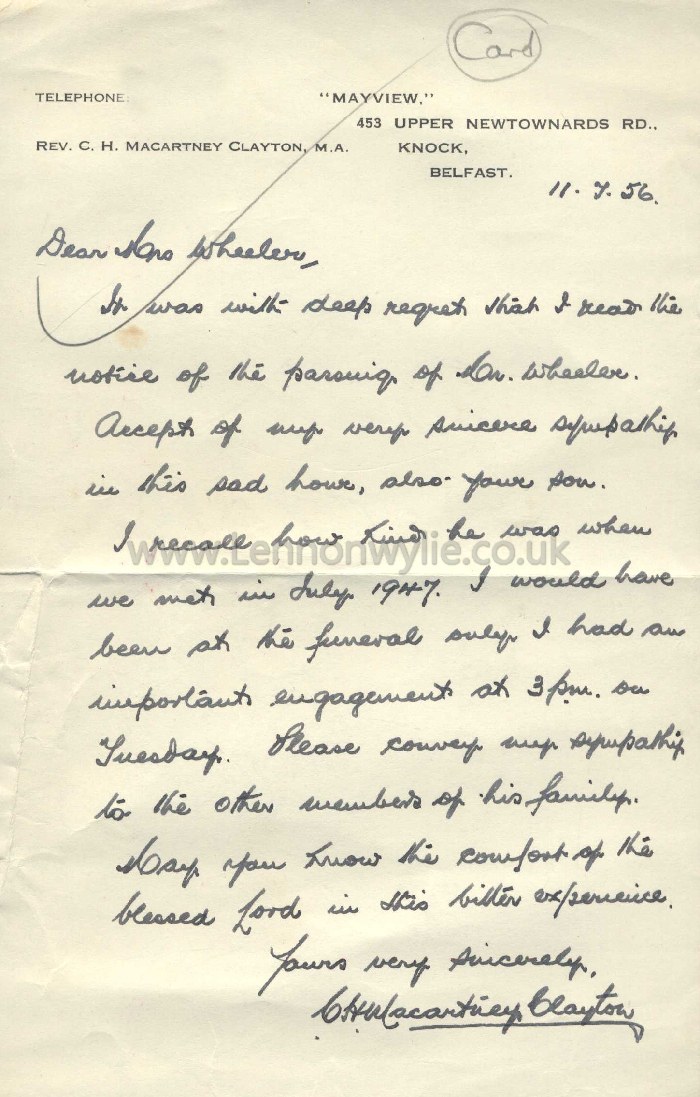 Card
TELEPHONE:
"MAYVIEW,"
453 UPPER NEWTOWNARDS RD.,
REV. C. H. MACARTNEY CLAYTON, M.A.
KNOCK,
BELFAST.
11.7.56.
Dear Mrs Wheeler,
It was with deep regret that I read the
notice of the passing of Mr. Wheeler.
Accept of my very sincere sympathy
in this sad hour, also your son.
I recall how kind he was when
www.Lennonwylie.co.uk
we met in July 1947. I would have
been at the funeral only I had an
important engagement at 3 p.m. on
Tuesday. Please convey my sympathy
to the other members of his family.
May you know the comfort of the
blessed Lord in this bitter experience.
Yours very sincerely,
C H Macartney Clayton